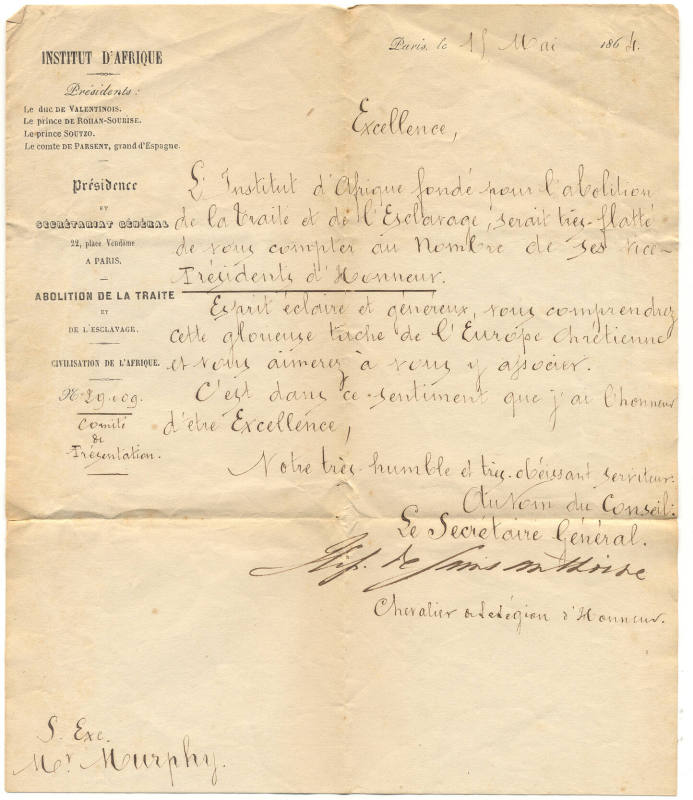 INSTITUT D'AFRIQUE
Présidents:
Le duc DE VALENTINOIS.
Le prince DE ROHAN-SOUBISE.
Le prince SOUTZO.
Le comte DE PARSENT, grand d'Espagne.
Présidence
ET
SECRÉTARIAT GÉNÉRAL
22, place Vendôme
A PARIS.
ABOLITION DE LA TRAITE
ET
DE L'ESCLAVAGE.
CIVILISATION DE L'AFRIQUE.
No 29.109.
Comité
de
Présentation.
Paris, le 15 Mai 1864.
Excellence,
L'Institut d'Afrique fondé pour l'abolition
de la traite et de l'Esclavage, serait très-flatté
de vous compter au Nombre de ses vice-
Présidents d'Honneur.
Esprit éclairé et généreux, vous comprendrez
cette glorieuse tache de l'Europe Chrétienne
et vous aimerez à vous y associer.
C'est dans ce sentiment que j'ai l'honneur
d'être Excellence,
Votre très-humble et très-obéissant serviteur.
Au Nom du Conseil:
Le Secrétaire Général.
Hip. de
Chevalier de la Légion d'Honneur.
S. Exc.
Mr Murphy.